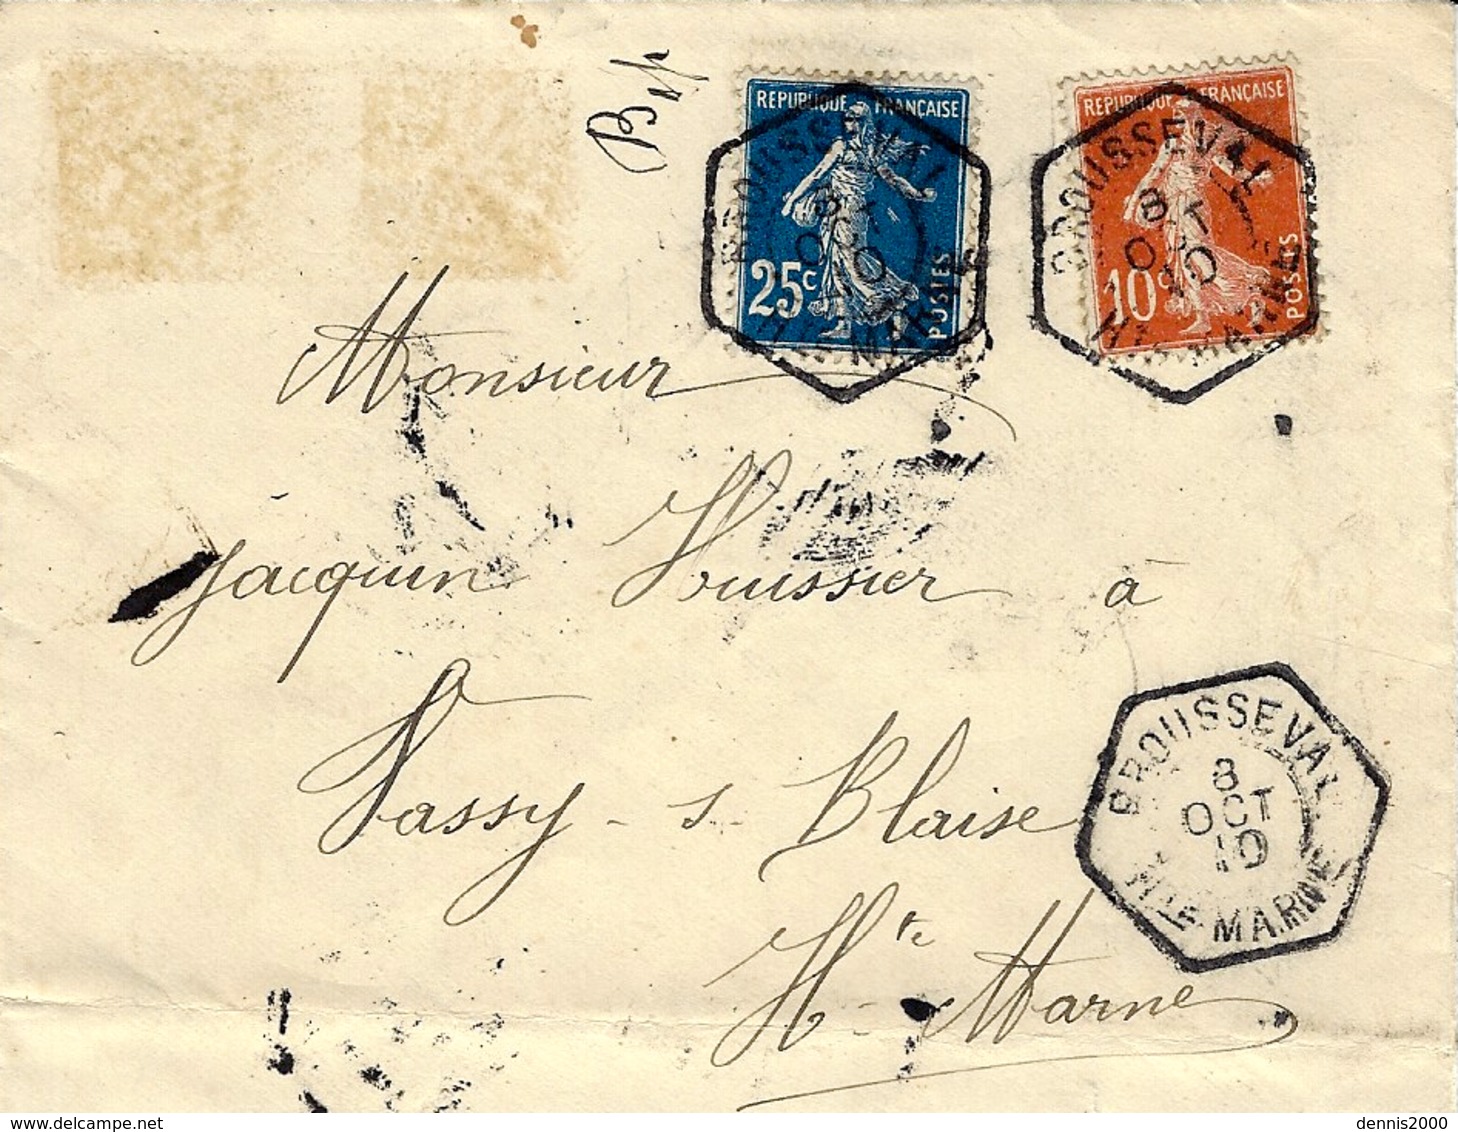 REPUBLIQUE FRANÇAISE
25c
POSTES
REPUBLIQUE FRANÇAISE
10c
POSTES
BROUSSEVAL
8
OCT
10
HTE MARNE
BROUSSEVAL
8
OCT
10
HTE MARNE
Monsieur
Jacquin Huissier à
Vassy - s Blaise
Hte - Marne
BROUSSEVAL
8
OCT
10
HTE MARNE
dennis2000